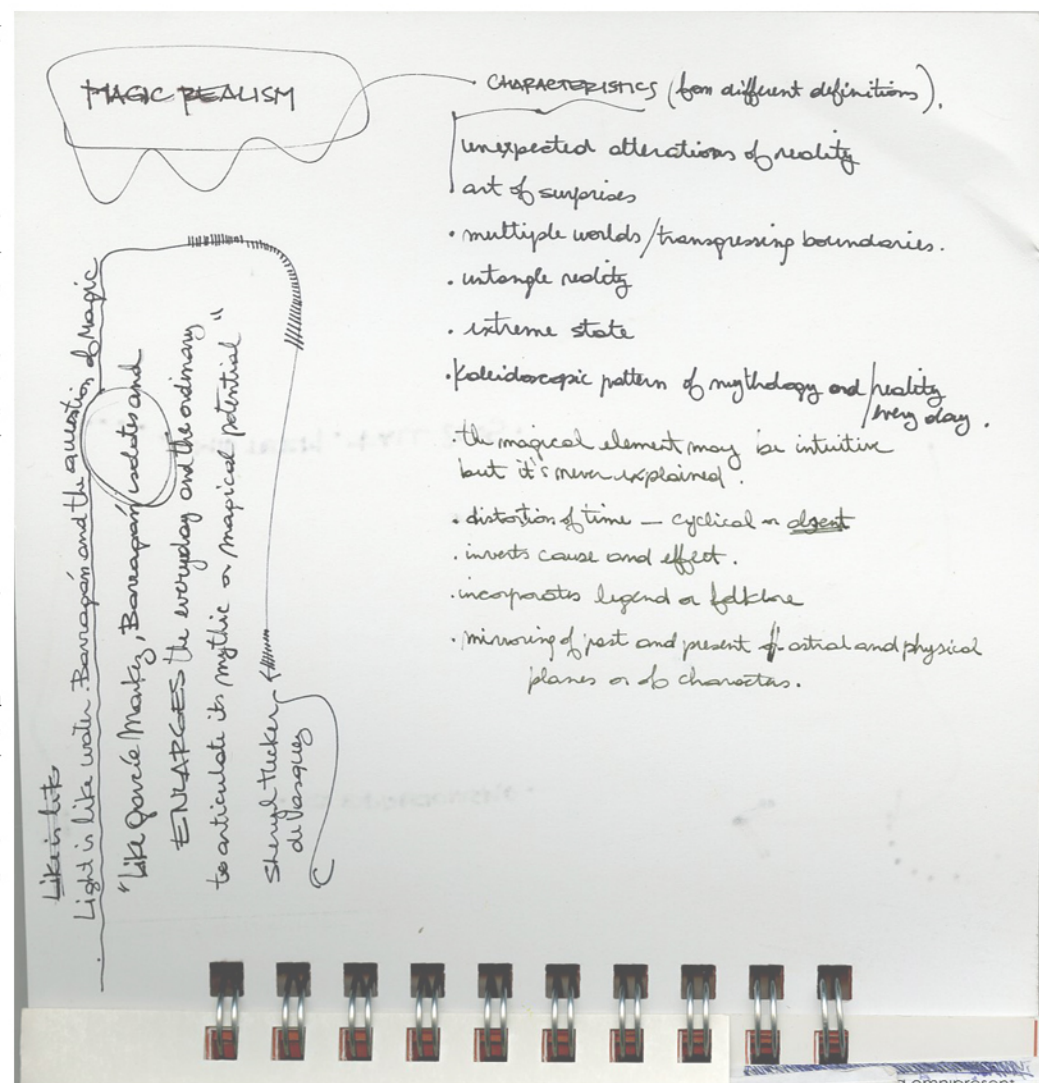 MAGIC REALISM
CHARACTERISTICS (from different definitions).
unexpected alterations of reality
art of surprises
• multiple worlds/transgressing boundaries.
• untangle reality
• extreme state
• Kaleidoscopic pattern of mythology and/reality
every day.
• the magical element may be intuitive
but it's never explained.
• distortion of time — cyclical or absent
• inverts cause and effect.
• incorporates legend or folklore
• mirroring of past and present of astral and physical
planes or of characters.
Light is like water. Barragán and the question of Magic
"Like García Markez, Barragán isolates and
ENLARGES the everyday and the ordinary
to articulate its mythic or magical potential"
Sheryl tucker
de Vasquez